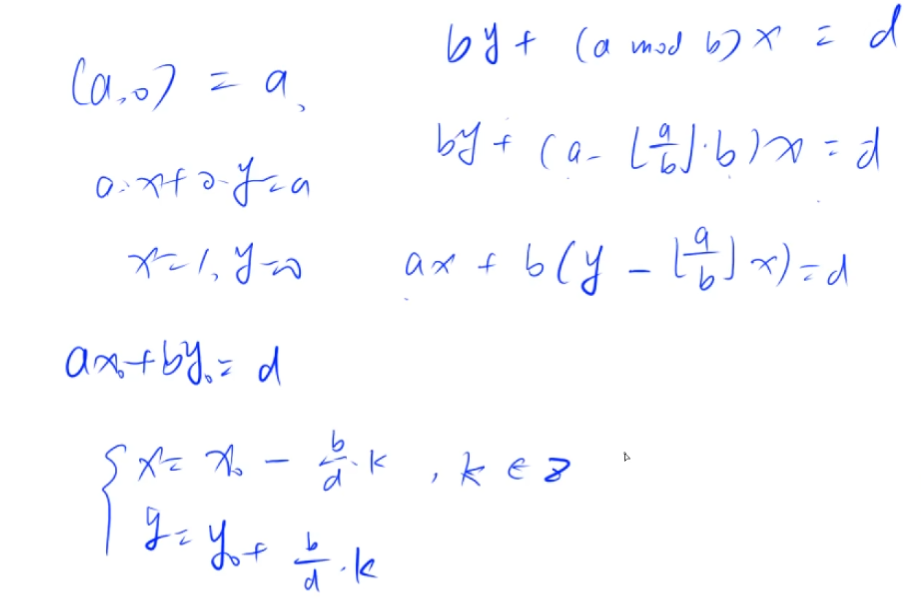 (a,0) = a,
a·x+0·y=a
x=1, y=0
by + (a mod b)x = d
by + (a - ⌊a/b⌋·b)x = d
ax + b(y - ⌊a/b⌋x) = d
ax₀+by₀= d
{ x= x₀ - b/d·k , k ∈ Z
y= y₀+ b/d·k